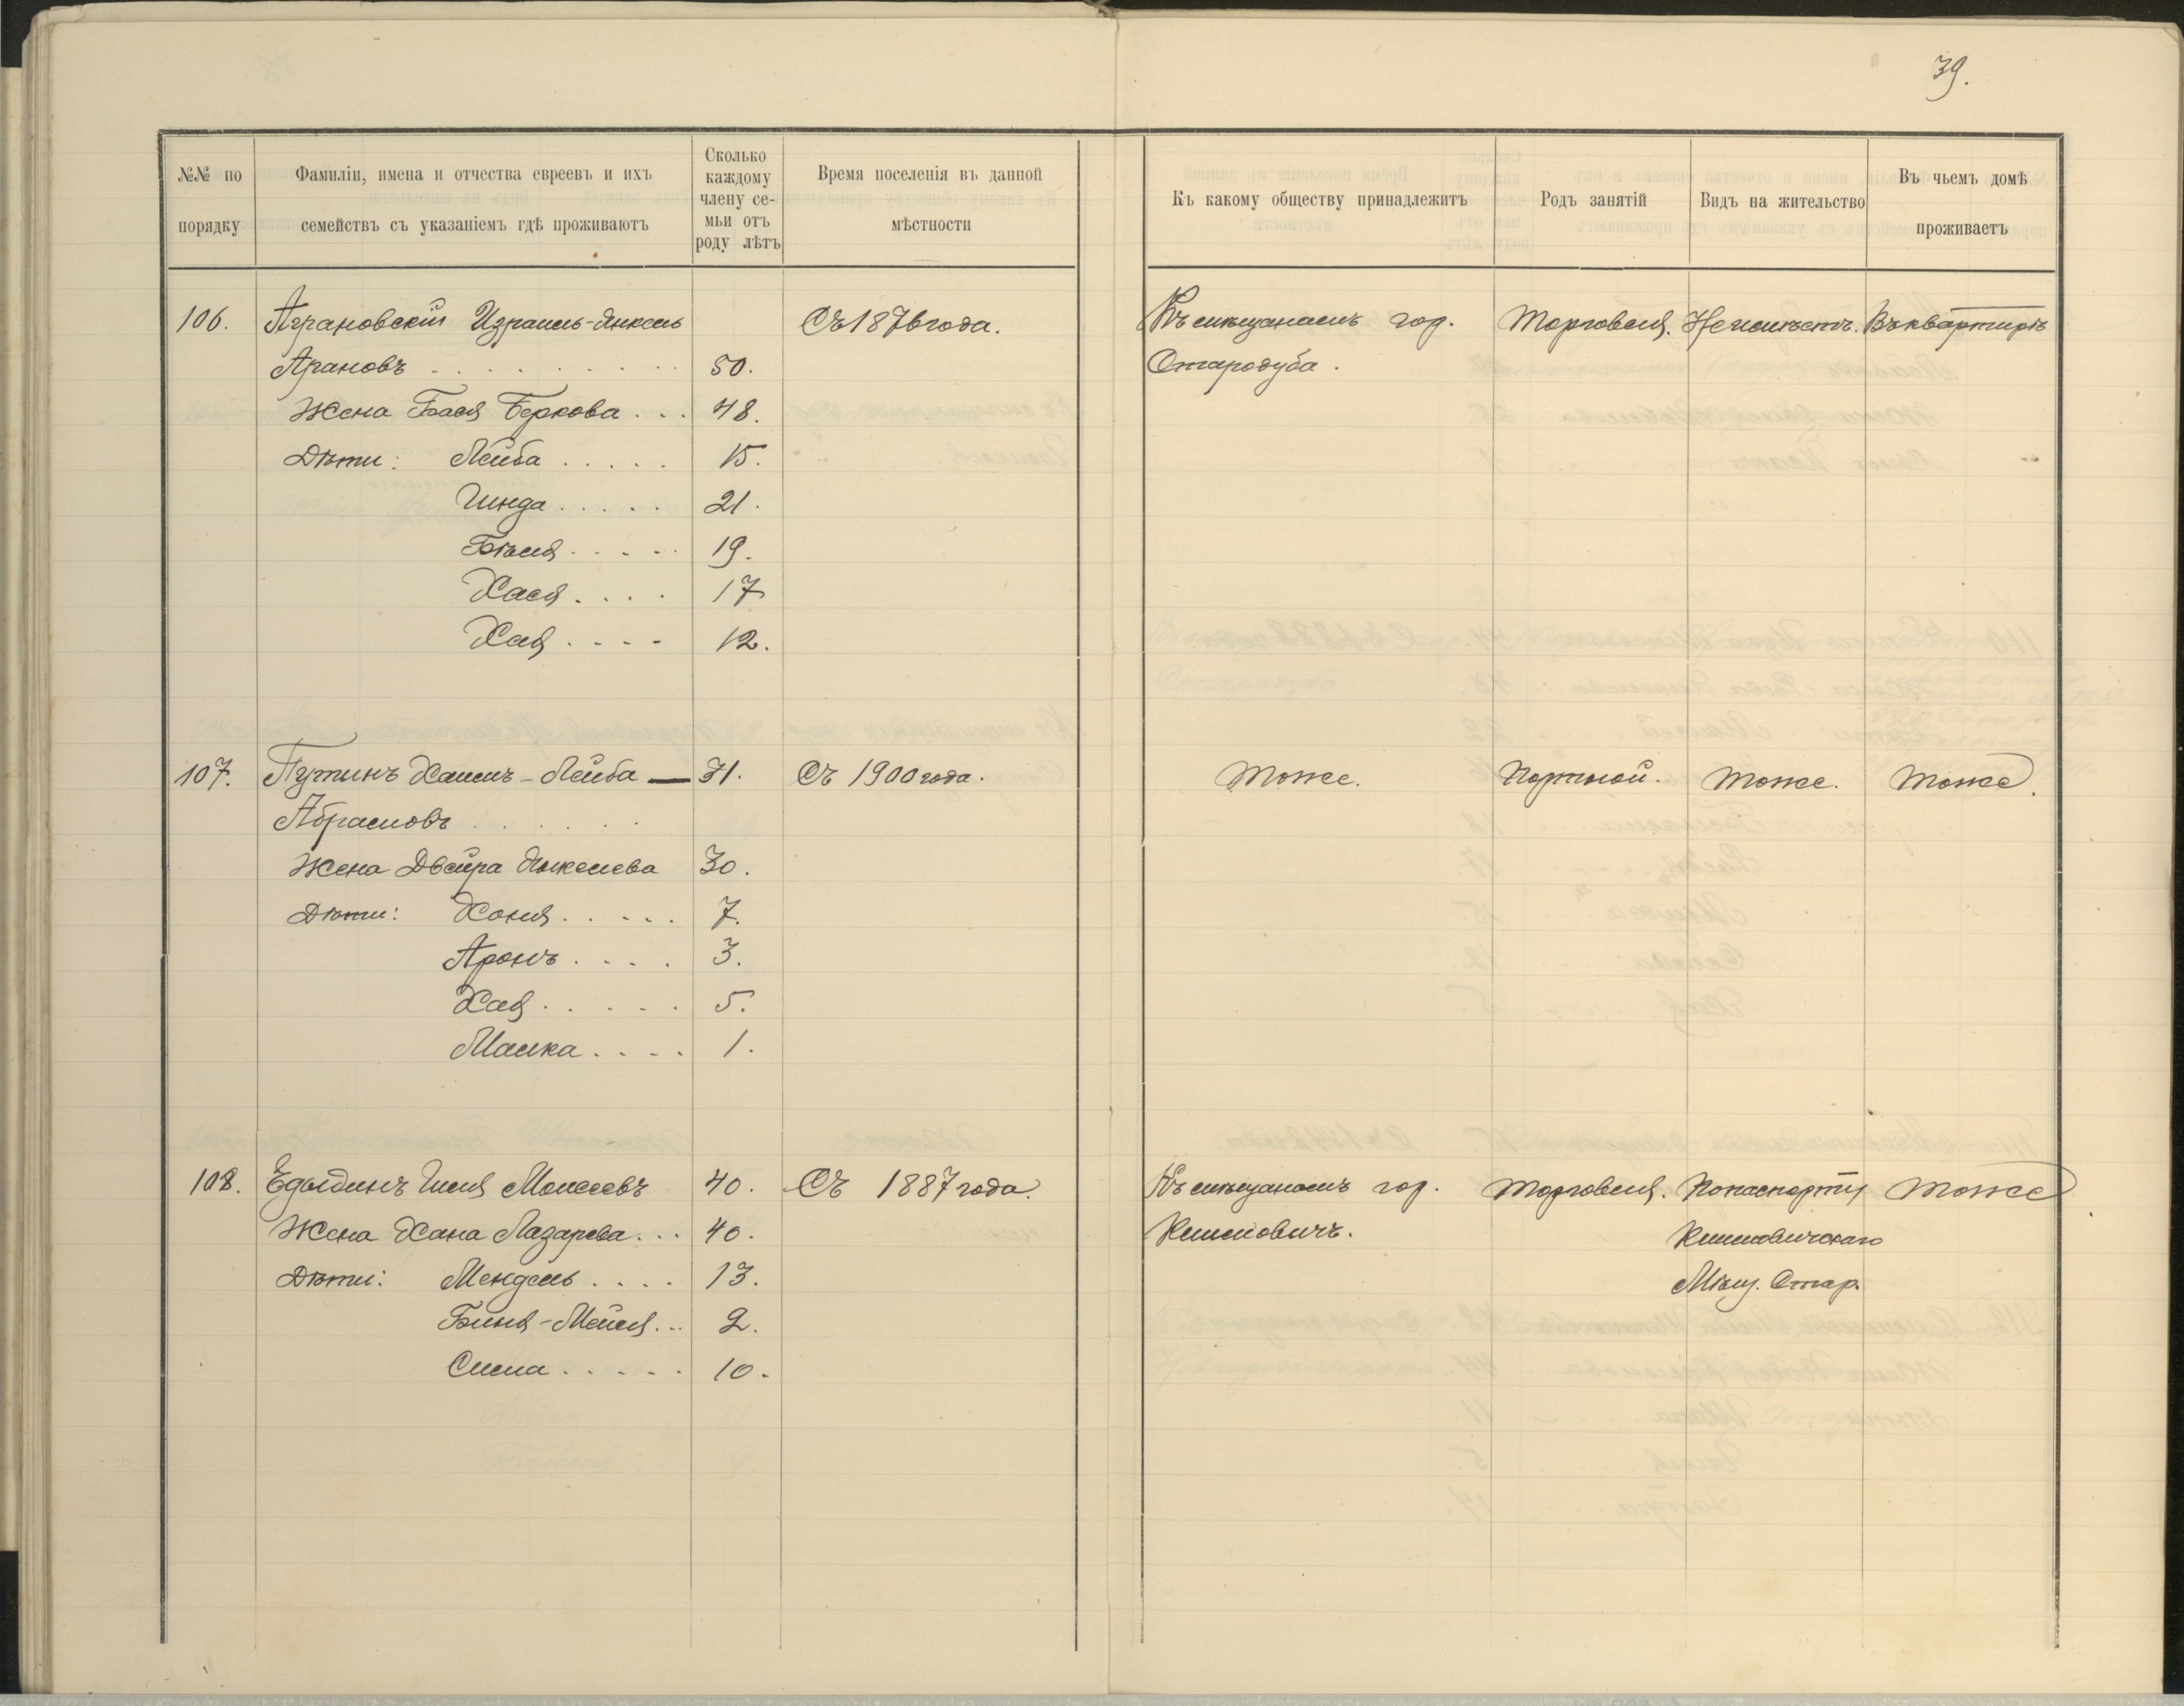 39.
№№ по порядку
Фамиліи, имена и отчества евреевъ и ихъ семействъ съ указаніемъ гдѣ проживаютъ
Сколько каждому члену се-мьи отъ роду лѣтъ
Время поселенія въ данной мѣстности
Къ какому обществу принадлежитъ
Родъ занятій
Видъ на жительство
Въ чьемъ домѣ проживаетъ
106. Аграновскій Израиль-Янкель Съ 1876 года. Къ мѣщанамъ гор. Торговля. Неимѣетъ. Въ квартирѣ
Арановъ . . . . . . . . 50. Стародуба.
Жена Бася Беркова . . . 48.
Дѣти: Лейба . . . . . 15.
Гинда . . . . . 21.
Бѣля . . . . . 19.
Хася . . . . 17
Хая . . . . 12.
107. Путинъ Хаимъ-Лейба — 31. Съ 1900 года. тоже. Портной. тоже. тоже.
Абрамовъ . . . . . .
Жена Двейра Янкелева 30.
Дѣти: Хоня . . . . . 7.
Аронъ . . . . 3.
Хая . . . . . 5.
Малка . . . . 1.
108. Гиля Моисеевъ 40. Съ 1887 года. Къ мѣщанамъ гор. Торговля. По паспорту тоже
Жена Хана Лазарева . . . 40. Климовичъ. Климовичскаго
Дѣти: Мендель . . . . 13. Мѣщ. Стар.
Биня-Мейля . . . 2.
Сима . . . . . 10.